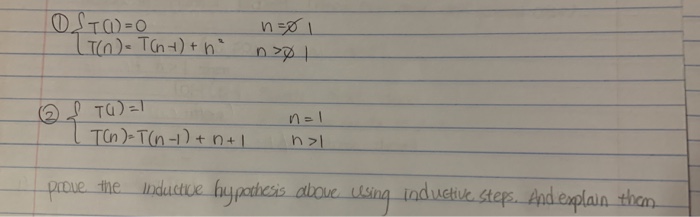 ① { T(1) = 0 n = 1
T(n) = T(n-1) + n² n > 1
② { T(1) = 1 n = 1
T(n) = T(n-1) + n + 1 n > 1
prove the inductive hypothesis above using inductive steps. And explain them